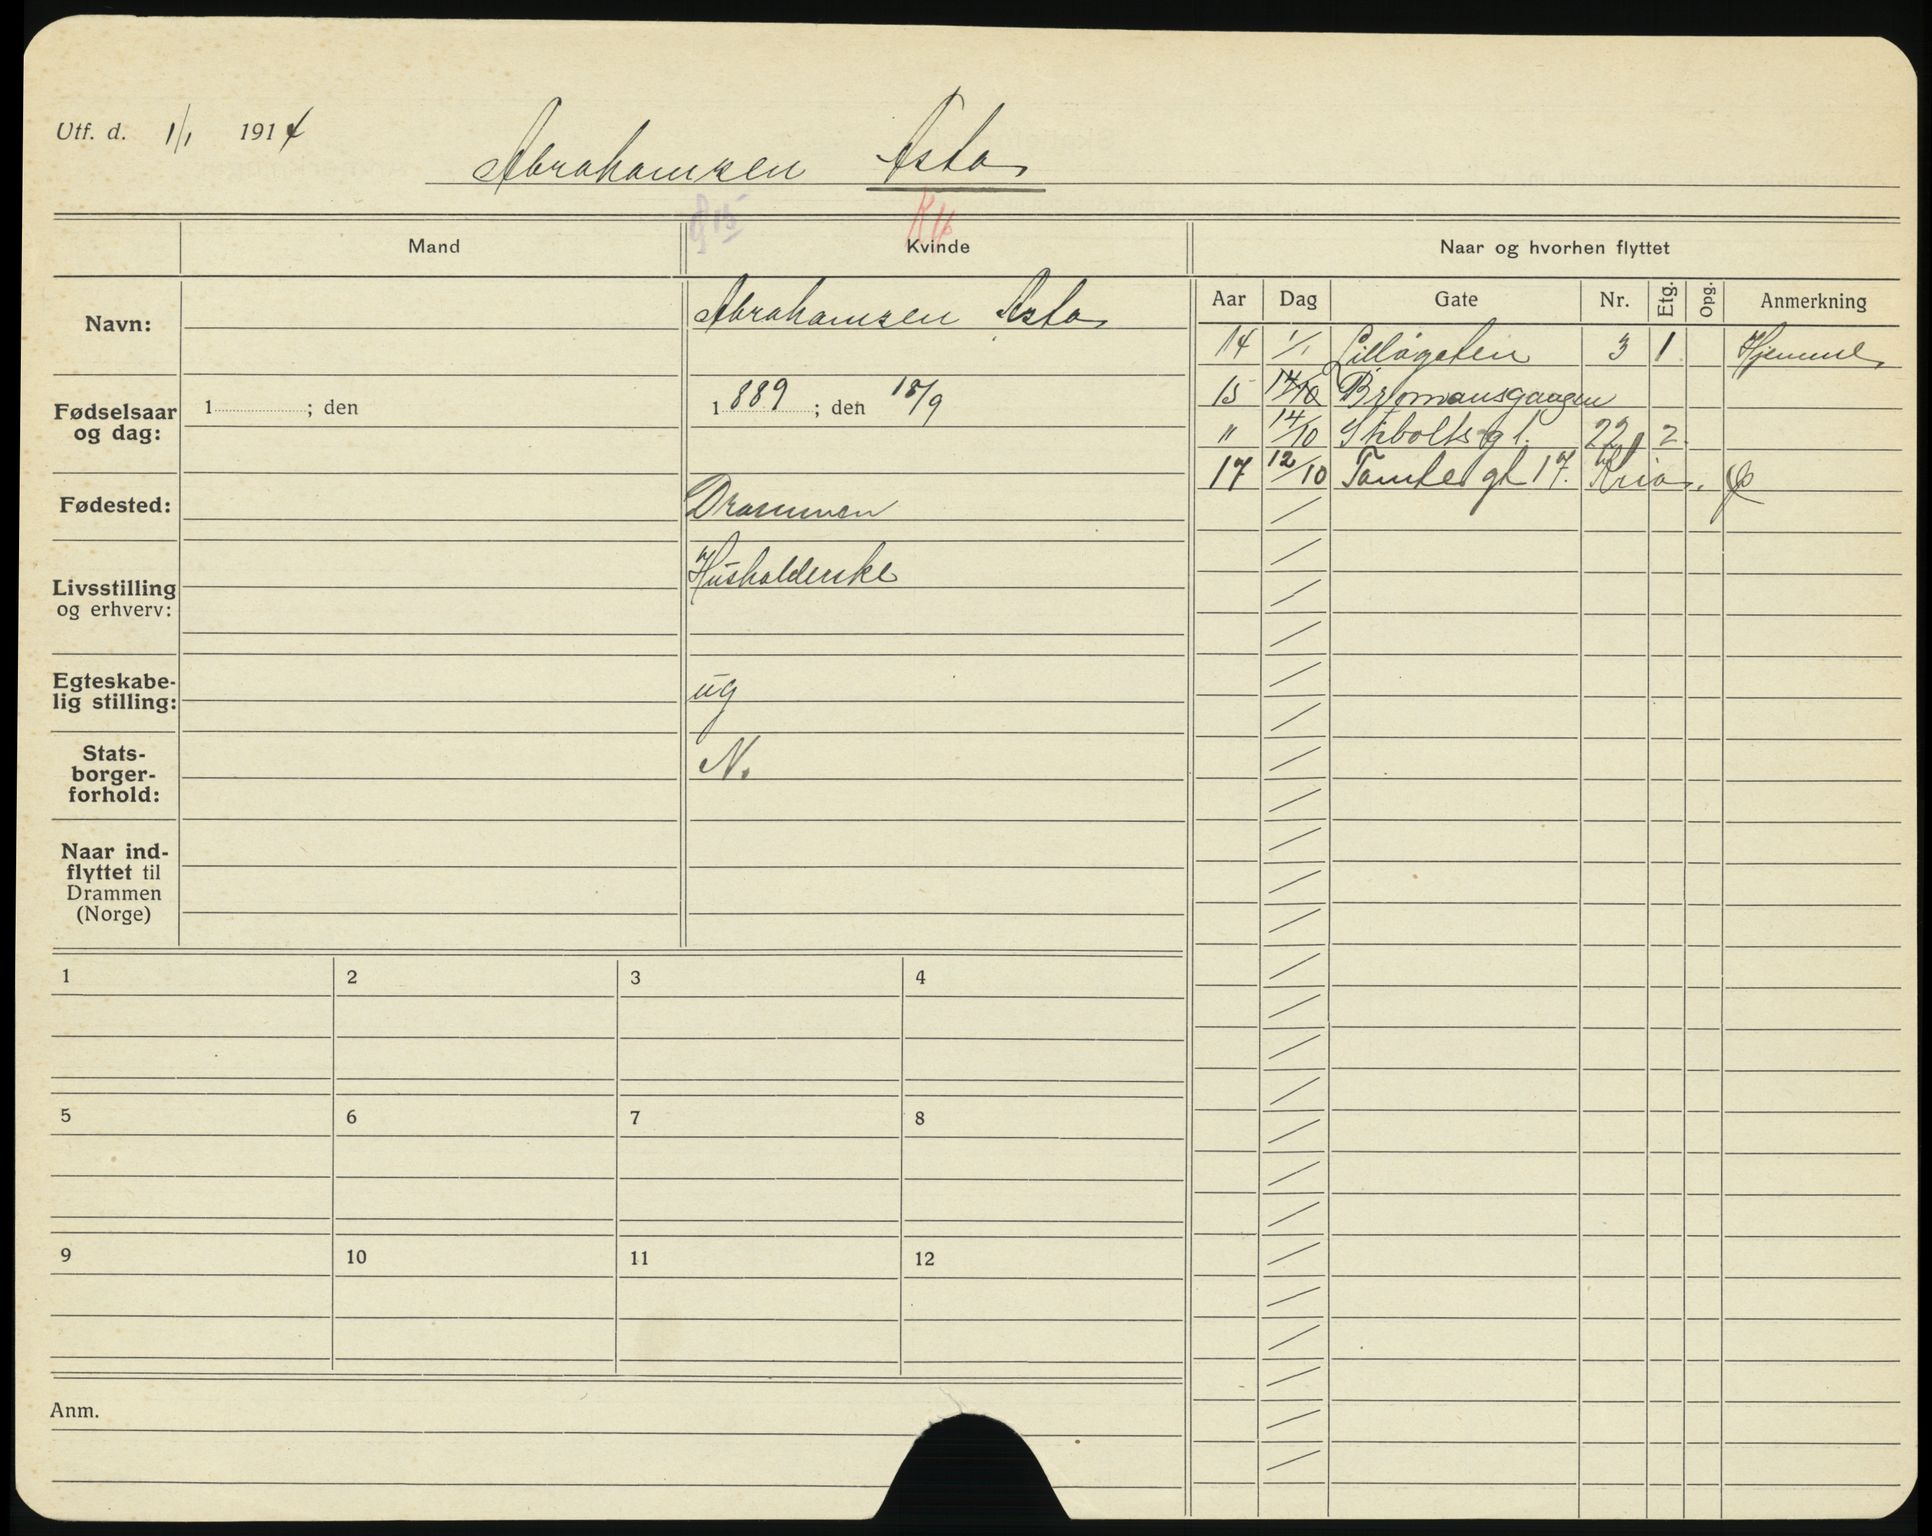 Utf. d. 1/1 1914
Abrahamsen Asta
Mand Kvinde Naar og hvorhen flyttet
Aar Dag Gate Nr. Etg. Opg. Anmerkning
Navn: Abrahamsen Asta
14 1/1 Lilløgaten 3 1 Hjemme
Fødselsaar og dag: 1 ; den 1889 ; den 18/9
15 14/10 Bromansgaagen
" 14/10 Stiboltsgt. 22 2
17 12/10 Tomtegt 17. Kria.
Fødested: Drammen
Livsstilling og erhverv: Husholderske
Egteskabe-
lig stilling: ug
Stats-
borger-
forhold: N.
Naar ind-
flyttet til
Drammen
(Norge)
1 2 3 4
5 6 7 8
9 10 11 12
Anm.